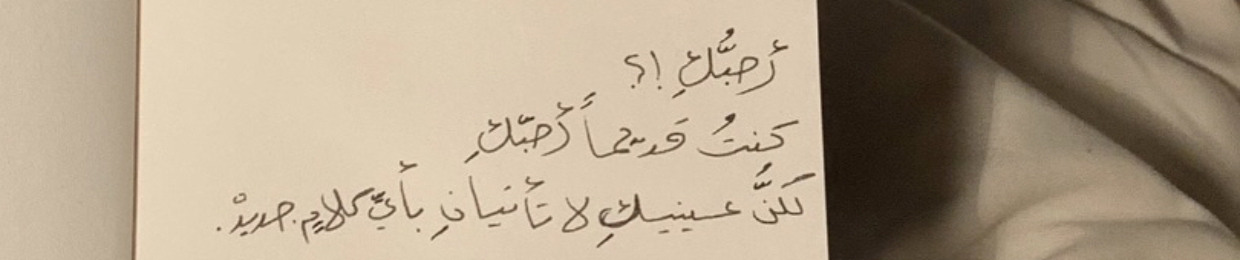 أحبُّكِ !؟
كنتُ قديماً أحبّكِ
لكنَّ عينيكِ لا تأتيانِ بأيِّ كلامٍ جديدْ.